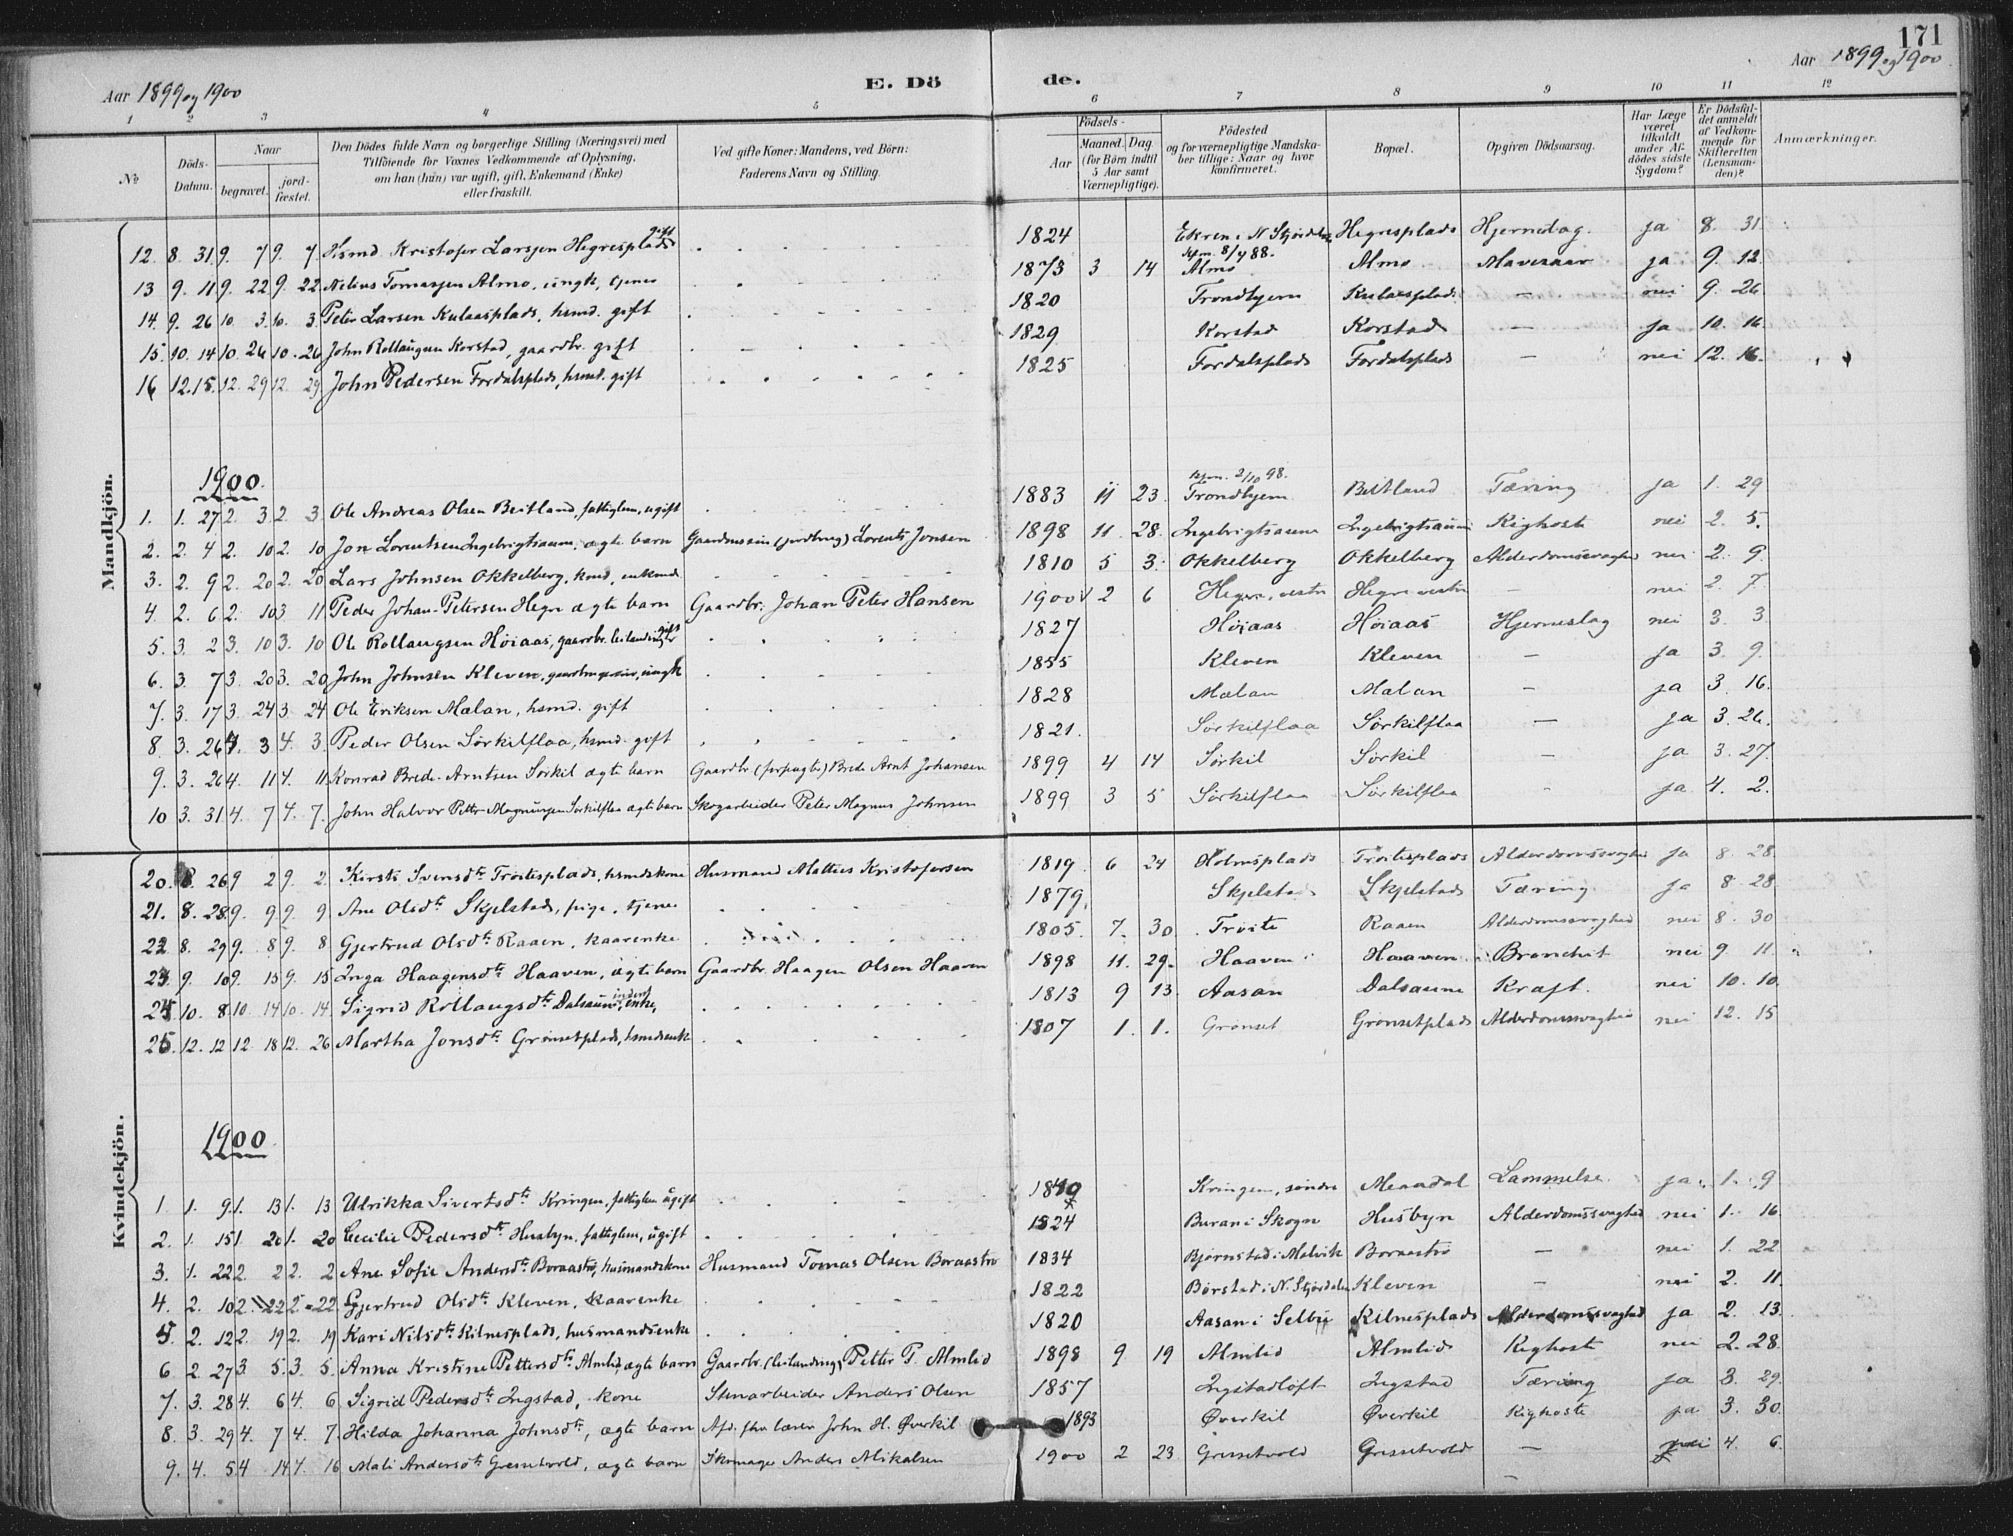 171
Aar 1899 og 1900
E. Dö
de.
Aar 1899 og 1900
1 2 3 4 5 6 7 8 9 10 11 12
No
Döds-Datum.
Naar
begravet.
jord-fæstet.
Den Dödes fulde Navn og borgerlige Stilling (Næringsvei) med
Tilföiende for Voxnes Vedkommende af Oplysning,
om han (hun) var ugift, gift, Enkemand (Enke)
eller fraskilt.
Ved gifte Koner: Mandens, ved Börn:
Faderens Navn og Stilling.
Födsels-
Aar
Maaned. Dag
(for Börn indtil
5 Aar samt
Værnepligtige).
Födested
og for værnepligtige Mandska-
ber tillige: Naar og hvor
konfirmeret.
Bopæl.
Opgiven Dödsaarsag.
Har Læge
været
tilkaldt
under Af-
dödes sidste
Sygdom?
Er Dödsfal-
det anmeldt
af Vedkom-
mende for
Skifteretten
(Lensman-
den)?
Anmærkninger.
Mandkjön.
12. 8 31 9. 7 9. 7 Hsmd. Kristofer Larssen Hegresplads gift 1824 Ekren i N. Stjørdalen Hegresplads Hjerneslag ja 8. 31.
13 9. 11 9. 22 9. 22 Nelius Tomassen Almo, ungk, tjener 1873 3 14 Almo Almo Mavesaar ja 9. 12
14. 9. 26 10. 3. 10. 3. Peter Larsen Kulaasplads, hsmd. gift 1820 Trondhjem Kulaasplads — nei 9. 26.
15. 10. 14 10. 26 10. 26 John Rollaugsen Korstad, gaardbr. gift 1829 Korstad Korstad — ja 10. 16.
16 12. 15. 12. 29 12. 29 John Pedersen Fordalsplads, hsmd. gift 1825 Fordalsplads Fordalsplads — nei 12. 16.
1900.
1. 1. 27 2. 3 2. 3 Ole Andreas Olsen Beitland, fattiglem, ugift 1883 11 23. 2/10 98. Trondhjem Beitland Tæring ja 1. 29
2. 2. 4 2. 10 2. 10 Jon Lorentsen Ingebrigtsaune, ægte barn Gaardmssøn (jordbrug) Lorents Jonsen 1898 11. 28. Ingebrigtsaune Ingebrigtsaune Kighoste nei 2. 5.
3. 2. 9 2. 20 2. 20 Lars Johnsen Okkelberg, kmd, enkmd 1810 5 3. Okkelberg Okkelberg Alderdomssvaghed nei 2. 9.
4. 2. 6 2. 10 3. 11 Peder Johan-Petersen Hegre ægte barn Gaardbr. Johan Peter Hansen 1900 2 6 Hegre, vestre Hegre vestre — nei 2. 7.
5. 3. 2 3. 10 3. 10 Ole Rollaugsen Höiaas, gaardbr. leilending gift 1827 Höiaas Höiaas Hjerneslag nei 3. 3.
6. 3. 7 3. 20 3. 20 John Johnsen Kleven, ungk 1855 Kleven Kleven — ja 3. 9.
7. 3. 17 3. 24 3. 24 Ole Eriksen Mælan, hsmd. gift 1828 Mælan Mælan — ja 3. 16.
8. 3. 26 4. 3 4. 3. Peder Olsen Sörkilflaa, hsmd. gift 1821. Sörkilflaa Sörkilflaa — ja 3. 26.
9. 3. 26 4. 11 4. 11 Konrad Brede-Arntsen Sörkil ægte barn Gaardbr (forpagter) Brede Arnt Johansen 1899 4 14 Sörkil Sörkil — ja 3. 27.
10 3. 31 4. 7 4. 7. John Halvor Petter-Magnussen Sörkilflaa ægte barn Skogarbeider Peter Magnus Johnsen 1899 3 5 Sörkilflaa Sörkilflaa - ja 4. 2.
Kvindekjön.
20. 8. 26 9. 2 9. 2. Kirsti Svensdtr Tröitesplads, hsmdskone Husmand Mattias Kristofersen 1819 6 24 Holmsplads Tröitesplads Alderdomssvaghed ja 8. 28.
21. 8. 28 9. 9 9. 9 Ane Olsdtr Skjelstad, pige, tjener 1879. Skjelstad Skjelstad Tæring ja 8. 28
22 8. 29 9. 8 9. 8. Gjertrud Olsdtr Raaen, kaarenke 1805. 7. 30. Tröite Raaen Alderdomssvaghed nei 8. 30
23 9. 10 9. 15 9. 15 Inga Haagensdtr Haaven, ægte barn Gaardbr. Haagen Olsen Haaven 1898 11. 29. Haaven Haaven Bronchit nei 9 11
24 10. 8 10. 14 10. 14 Sigrid Rollaugsdtr Dalsaune, inderst enke, 1813 9 13. Aasan Dalsaune Kræft. nei 10. 10
25. 12. 12 12. 18 12. 26 Martha Jonsdtr Grönsetplads, hsmdsenk 1807 1. 1. Grönset Grönsetplads Alderdomssvaghed nei 12. 15
1900
1. 1. 9 1. 13 1. 13 Ulrikka Sivertsdtr Kringen, fattiglem ugift Kringen, søndre Meaadal Lammelse. ja. 1. 9
2. 1. 15 1. 20 1. 20 Cecilie Pedersdtr Husbyn, fattiglem, ugift 1824 Buran i Skogn Husbyn Alderdomssvaghed nei 1. 16
3. 1. 22 2. 2 2. 2 Ane Sofie Andersdtr Boraaströ, husmandskone Husmand Tomas Olsen Boraaströ 1834 Björnstad i Malvik Boraaströ — nei 1. 22
4. 2. 10 2. 22 2. 22 Gjertrud Olsdtr Kleven, kaarenke 1822 Börstad i N. Stjördalen Kleven — nei 2. 11.
5. 2. 12 2. 19 2. 19 Kari Nilsdtr Kilnesplads, husmandsenke 1820 Aasan i Selbu Kilnesplads Alderdomssvaghed ja 2. 13.
6 2. 27 3. 5. 3. 5. Anna Kristine Pettersdtr Almlid, ægte barn Gaardbr. (leilending) Petter P. Almlid 1898 9 19 Almlid Almlid Kighoste nei 2. 28.
7. 3. 28 4. 6 4. 6 Sigrid Pedersdtr Ingstad, kone Stenarbeider Anders Olsen 1857 Ingstadloft Ingstad Tæring ja 3. 29.
8. 3. 29 4. 7 4. 7. Hilda Johanna Johnsdtr, ægte barn Afd. fhv lærer John H. Øverkil 1893 Øverkil Øverkil Kighoste ja 3. 30.
9. 4. 5 4 14 4. 16 Mali Andersdtr Gresetvold, ægte barn Skomager Anders Mikalsen 1900 2 23 Gressetvold Gressetvold — nei 4. 6.